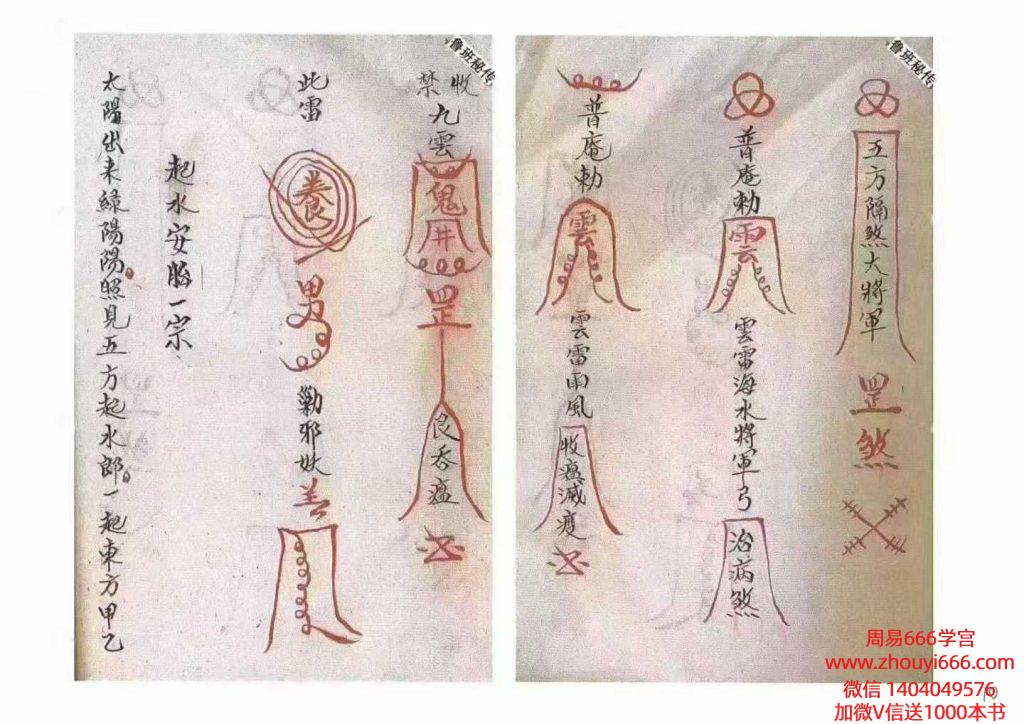 鲁班秘传
五方隔煞大將軍
罡煞
普庵勅
雲
雲雷海水將軍弓
治病煞
普庵勅
雲
雲雷雨風
收瘟滅疫
鲁班秘传
收禁九雲
鬼
井
罡
艮吞瘟
此雷
男
勦邪妖
善
起水安胎一宗
太陽出来緑陽陽照見五方起水郎一起東方甲乙
周易666学宫
www.zhouyi666.com
微信 1404049576
加微V信送1000本书